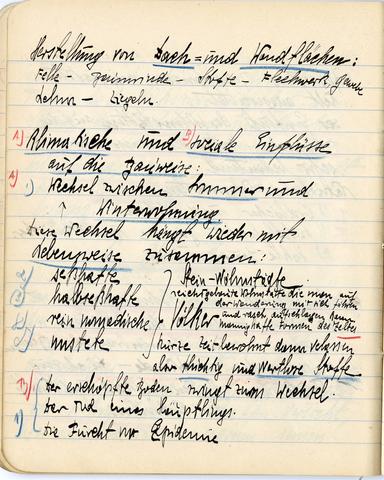 Herstellung von Dach= und Wandflächen:
Felle - Baumrinde - Stoffe - Flechtwerk,
Lehm - Ziegeln.
1) Klimatische und soziale Einflüsse
auf die Bauweise:
1) Wechsel zwischen Sommer und
Winterwohnung
diese Wechsel hängt wieder mit
Lebensweise zusammen:
seßhafte
halbseßhafte
rein nomadische
unstete
Völker
Stein-Wohnstädte
die man auf
der Wanderung mit sich führen
und rasch aufschlagen kann
mannigfache Formen des Zeltes
kurze Zeit bewohnt dann verlassen
aber flüchtig und wertlose Stoffe
der erschöpfte Boden zwingt zum Wechsel.
der Tod eines Häuptlings.
die Furcht vor Epidemie